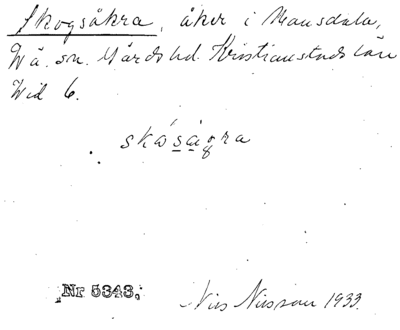 Skogsåkra, åker i Mansdala,
Wä sn. Gärds hd. Kristianstads län
Wid 6.
skåsågra
Nr 5343.
Nils Nilsson 1933.